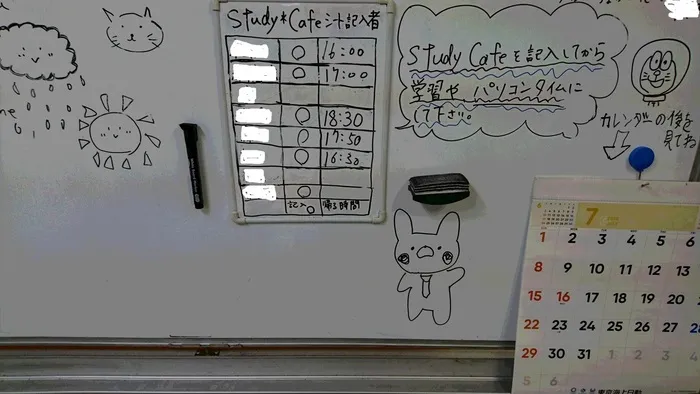 Study*Cafeシート記入者
○ 16:00
○ 17:00
○ 18:30
○ 17:50
○ 16:30
○
記入○ 帰る時間
Study Cafeを記入してから
学習や パソコンタイムに
して下さい。
カレンダーの後を
見てね
7
1 2 3 4 5 6
8 9 10 11 12 13
15 16 17 18 19 20
22 23 24 25 26 27
29 30 31 1 2 3 4
5 6
東京海上日動